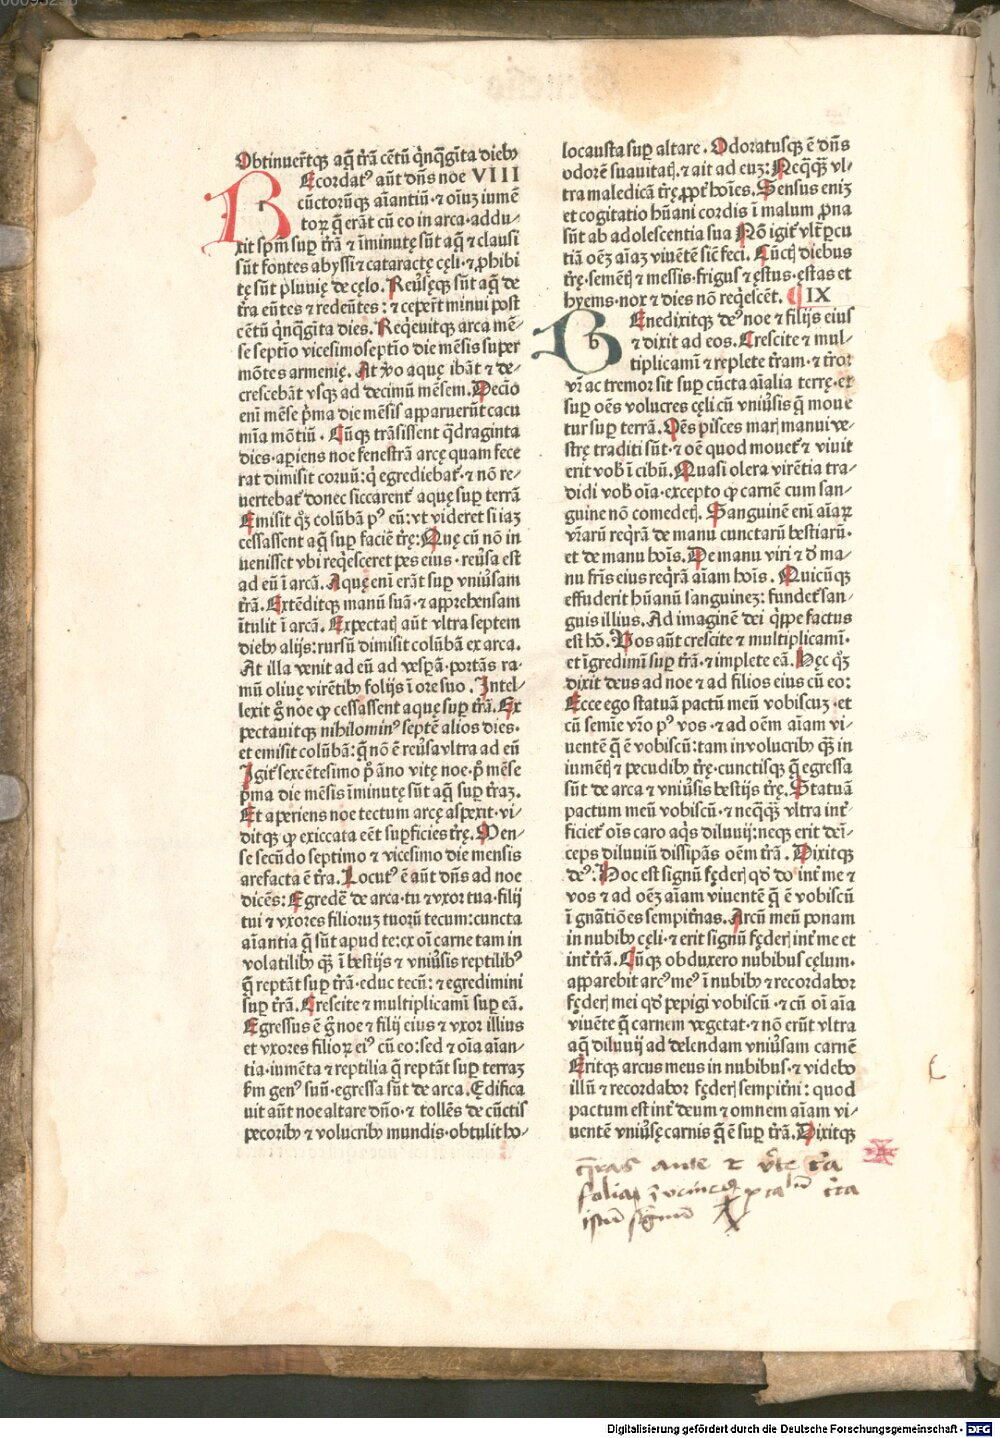 Obtinuer̄tq; aq̄ t̄rā cētū q̇nq̄gīta dieb₉
Recordat⁹ aūt dn̄s noe VIII
cūctorūq; aīantiū·⁊ oīuʒ iumē
toꝝ q̄ erāt cū eo in arca·addu/
xit spm̄ suꝑ t̄rā ⁊ īminutę sūt aq̄ ⁊ clausi
sūt fontes abyssi ⁊ cataractę cęli·⁊ ꝓhibi
tę sūt pluuię de cęlo. Reu̇sęq; sūt aq̄ de
t̄ra eūtes ⁊ redeūtes: ⁊ ceper̄t minui post
cētū q̇nq̄gīta dies. Reqeuitq; arca mē/
se septīo vicesimoseptīo die mēsis super
mōtes armenię. At v̊o aquę ibāt ⁊ de/
crescebāt vsq; ad decimū mēsem. Decīo
enī mēse pͥma die mēsis apparuerūt cacu
mīa mōtiū. Cūq; trāsissent q̄draginta
dies·aꝑiens noe fenestrā arcę quam fece
rat dimisit coruū: q̇ egrediebat̄·⁊ nō re/
uertebat̄ donec siccarent̄ aquę suꝑ terrā
Emisit qʒ colūbā p⁹ eū: vt videret si iaʒ
cessassent aq̄ suꝑ faciē t̄rę: Quę cū nō in
uenisset vbi reqesceret pes eius·reu̇sa est
ad eū ī arcā. Aquę enī erāt suꝑ vniu̇sam
t̄rā. Extēditq; manū suā·⁊ apprehensam
ītulit ī arcā. Expectatꝭ aūt vltra septem
dieb₉ alijs: rursū dimisit colūbā ex arca.
At illa venit ad eū ad vesꝑā·portās ra/
mū oliuę virētib₉ folijs ī ore suo. Intel/
lexit g̊ noe ꝙ cessassent aquę suꝑ t̄rā. Ex
pectauitq; nihilomin⁹ septē alios dies·
et emisit colūbā: q̄ nō ē reu̇sa vltra ad eū
Igit̄ sexcētesimo pͥ āno vitę noe·pͥ mēse
pͥma die mēsis īminutę sūt aq̄ suꝑ t̄raʒ.
Et aperiens noe tectum arcę aspexit·vi/
ditq; ꝙ exiccata eēt suꝑficies t̄rę. Men/
se secūdo septimo ⁊ vicesimo die mensis
arefacta ē t̄ra. Locut⁹ ē aūt dn̄s ad noe
dicēs: Egredē de arca·tu ⁊ vxor tua·filij
tui ⁊ vxores filioruʒ tuorū tecum: cuncta
aīantia q̄ sūt apud te: ex oī carne tam in
volatilib₉ q̄ʒ ī bestijs ⁊ vniu̇sis reptilib⁹
q̄ reptāt suꝑ t̄rā·educ tecū: ⁊ egredimini
suꝑ t̄rā. Crescite ⁊ multiplicamī suꝑ eā.
Egressus ē g̊ noe ⁊ filij eius ⁊ vxor illius
et vxores filioꝝ ei⁹ cū eo: sed ⁊ oīa aīan/
tia·iumēta ⁊ reptilia q̄ reptāt suꝑ terraʒ
ẜm gen⁹ suū·egressa sūt de arca. Ędifica
uit aūt noe altare dn̄o·⁊ tollēs de cūctis
pecorib₉ ⁊ volucrib₉ mundis·obtulit ho/
locausta suꝑ altare. Odoratusq; ē dn̄s
odorē suauitatꝭ·⁊ ait ad euʒ: Neq̄q̄ʒ vl/
tra maledicā t̄rę ꝓpt̄ hoīes. Sensus eniʒ
et cogitatio hūani cordis ī malum ꝓna
sūt ab adolescentia sua Nō igit̄ vlt̄ ꝑcu
tiā oēʒ aīaʒ viuētē siċ feci. Cūctꝭ diebus
t̄rę·sementꝭ ⁊ messis·frigus ⁊ ęstus·ęstas et
hyems·nox ⁊ dies nō reqescēt. IX
Benedixitq; de⁹ noe ⁊ filijs eius
⁊ dixit ad eos. Crescite ⁊ mul/
tiplicamī ⁊ replete t̄ram·⁊ t̄ror
vr̄ ac tremor sit suꝑ cūcta aīalia terrę·et
suꝑ oēs volucres cęli cū vniu̇sis q̄ moue
tur suꝑ terrā. Oēs pisces marꝭ manui ve/
strę traditi sūt·⁊ oē quod mouet̄ ⁊ viuit
erit vob̄ ī cibū. Quasi olera virētia tra/
didi vob̄ oīa·excepto ꝙ carnē cum san/
guine nō comedetꝭ. Sanguinē enī aīaꝝ
vr̄arū reqrā de manu cunctarū bestiarū·
et de manu hoīs. De manu viri ⁊ d̄ ma/
nu fr̄is eius reqrā aīam hoīs. Quicūq;
effuderit hūanū sanguineʒ: fundet̄ san/
guis illius. Ad imaginē dei q̇ppe factus
est hō. Vos aūt crescite ⁊ multiplicamī·
et īgredimī suꝑ t̄rā·⁊ implete eā. Hęc qʒ
dixit deus ad noe ⁊ ad filios eius cū eo:
Ecce ego statuā pactū meū vobiscuʒ·et
cū semīe vr̄o p⁹ vos·⁊ ad oēm aīam vi/
uentē q̄ ē vobiscū: tam in volucrib₉ q̄ʒ in
iumētꝭ ⁊ pecudib₉ t̄rę·cunctisq; q̄ egressa
sūt de arca ⁊ vniu̇sis bestijs t̄rę. Statuā
pactum meū vobiscū·⁊ neq̄q̄ʒ vltra int̄
ficiet̄ oīs caro aq̇s diluuij: neq; erit deī/
ceps diluuiū dissipās oēm t̄rā. Dixitq;
de⁹: Hoc est signū fęderꝭ qd̄ do int̄ me ⁊
vos ⁊ ad oēʒ aīam viuentē q̄ ē vobiscū
ī gn̄atiōes sempit̄nas. Arcū meū ponam
in nubib₉ cęli·⁊ erit signū fęderꝭ int̄ me et
int̄ t̄rā. Cūq; obduxero nubibus cęlum·
apparebit arc⁹ me⁹ ī nubib₉ ⁊ recordabor
fęderꝭ mei qd̄ pepigi vobiscū·⁊ cū oī aīa
viuēte q̄ carnem vegetat·⁊ nō erūt vltra
aq̄ diluuij ad delendam vniu̇sam carnē
Eritq; arcus meus in nubibus·⁊ videbo
illū ⁊ recordabor fęderꝭ sempit̄ni: quod
pactum est int̄ deum ⁊ omnem aīam vi/
uentē vniu̇sę carnis q̄ ē suꝑ t̄rā. Dixitq;
ante ⁊
folia
istud signum
Digitalisierung gefördert durch die Deutsche Forschungsgemeinschaft - DFG